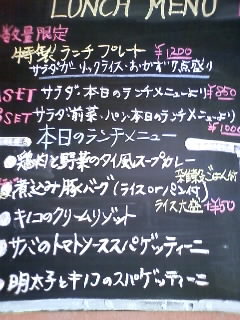 LUNCH MENU
数量限定
特製ランチプレート ¥1200
サラダ・ガーリックライス・おかず7点盛り
ASET サラダ・本日のランチメニューより ¥850
BSET サラダ・前菜・パン・本日のランチメニューより ¥1000
本日のランチメニュー
●鶏肉と野菜のタイ風スープカレー
●煮込み豚バーグ(ライスorパン付)
ライス大盛+¥50
●キノコのクリームリゾット
●サバのトマトソーススパゲッティーニ
●明太子とキノコのスパゲッティーニ